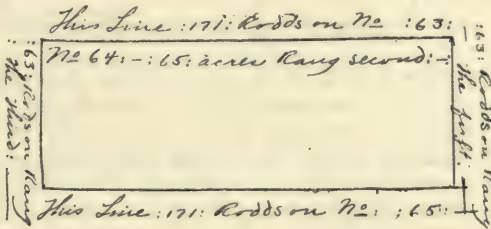 This Line :171: Rodds on No :63:
No 64: -: 65: acres Rang second: -:
:63: Rodds on Rang
the third:
:63: Rodds on Rang
the first:
This Line :171: Rodds on No: :65: